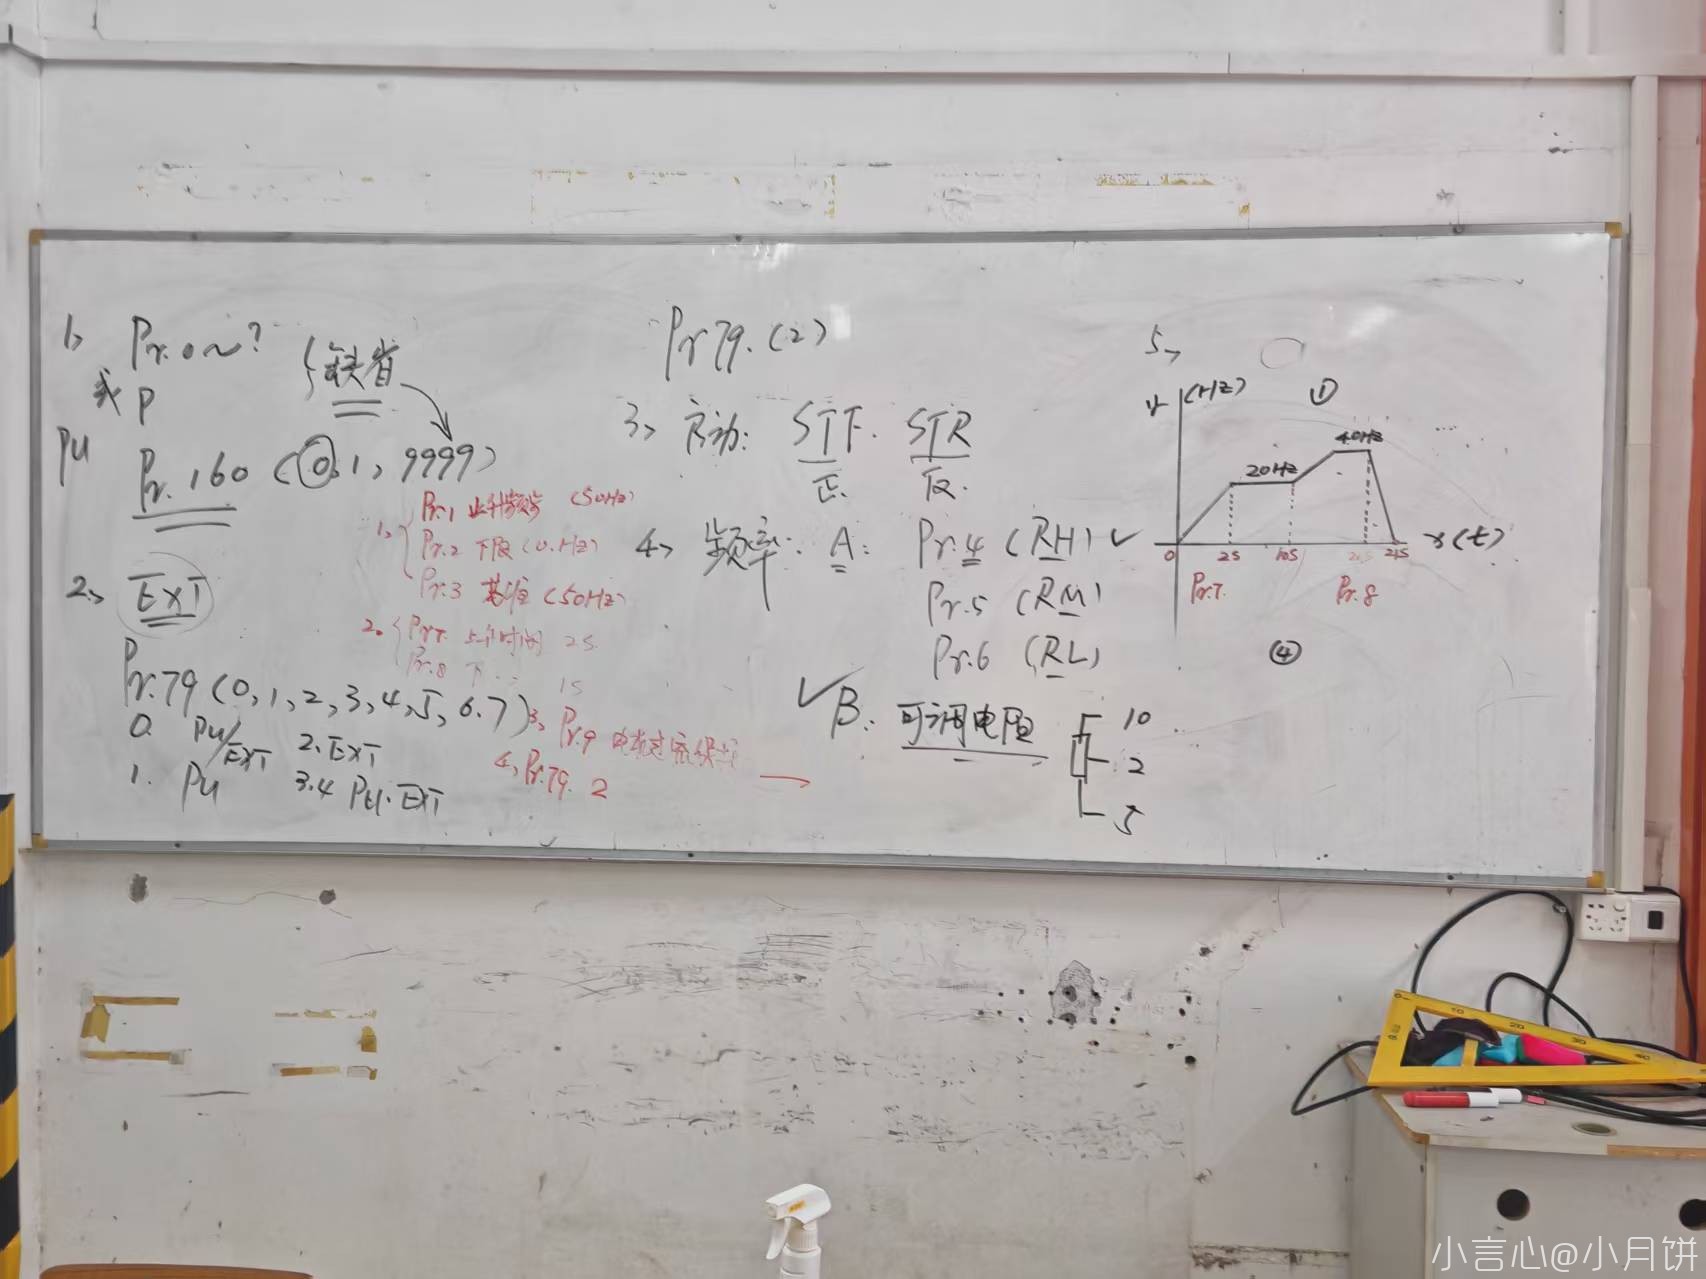 1、 Pr.0~?
或 P
{缺省
PU Pr.160 (0,1, 9999)
1、 Pr.1 上升频率 (50Hz)
Pr.2 下限 (0.Hz)
Pr.3 基准 (50Hz)
2、 EXT
2。 Pr.7. 上升时间 2S
Pr.8 下 .. 1S
Pr.79 (0,1,2,3,4,5,6.7)
0. PU/EXT 2.EXT
1. PU 3.4 PU.EXT
3、Pr.9 电机过流保护
4、Pr.79. 2
Pr79.(2)
3、 启动: STF. STR
正. 反.
4、 频率: A: Pr.4 (RH) ✓
Pr.5 (RM)
Pr.6 (RL)
✓B: 可调电阻 10
2
5
5、
(Hz) ①
40Hz
20Hz
0 2S 10S 21S x(t)
Pr.7. Pr.8
④
小言心@小月饼